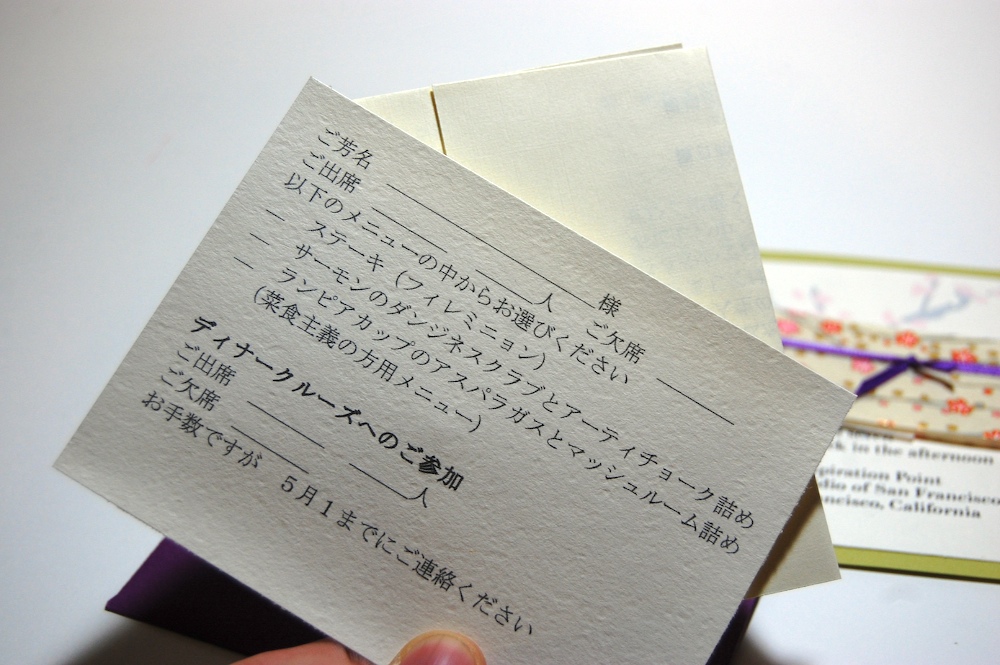 ご芳名 ____________ 様
ご出席 ____ ____人 ご欠席 ____
以下のメニューの中からお選びください
— ステーキ (フィレミニョン)
— サーモンのダンジネスクラブとアーティチョーク詰め
— ランピアカップのアスパラガスとマッシュルーム詰め
(菜食主義の方用メニュー)
ディナークルーズへのご参加
ご出席 ____ ____人
ご欠席 ____
お手数ですが 5月1までにご連絡ください
in the afternoon
piration Point
dio of San Francisco
ncisco, California